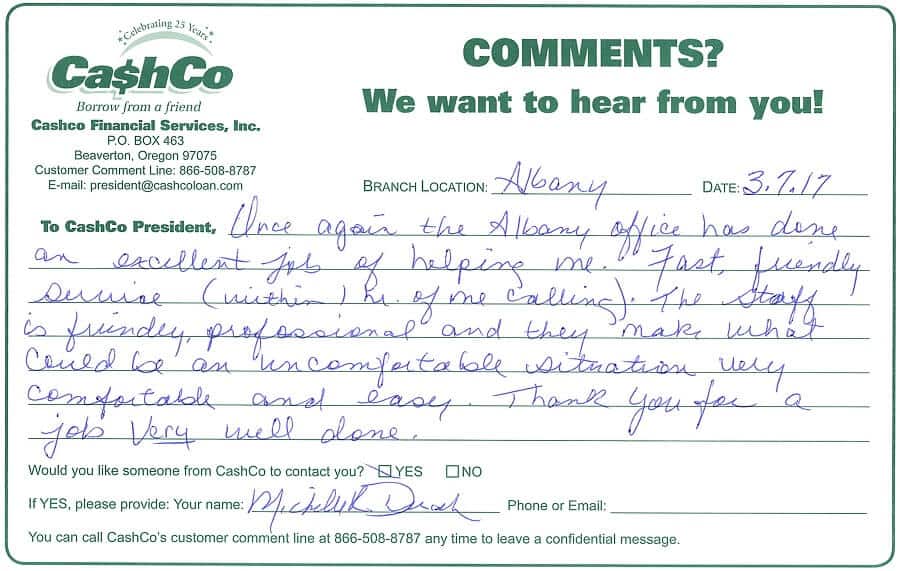 Celebrating 25 Years
Ca$hCo
Borrow from a friend
Cashco Financial Services, Inc.
P.O. BOX 463
Beaverton, Oregon 97075
Customer Comment Line: 866-508-8787
E-mail: president@cashcoloan.com
COMMENTS?
We want to hear from you!
BRANCH LOCATION: Albany DATE: 3.7.17
To CashCo President, Once again the Albany office has done
an excellent job of helping me. Fast, friendly
service (within 1 hr. of me calling). The staff
is friindey, profossional and they make what
could be an uncomfortable situation very
comfortable and easy. Thank you for a
job very well done.
Would you like someone from CashCo to contact you? YES NO
If YES, please provide: Your name: Michelle R. Phone or Email:
You can call CashCo's customer comment line at 866-508-8787 any time to leave a confidential message.